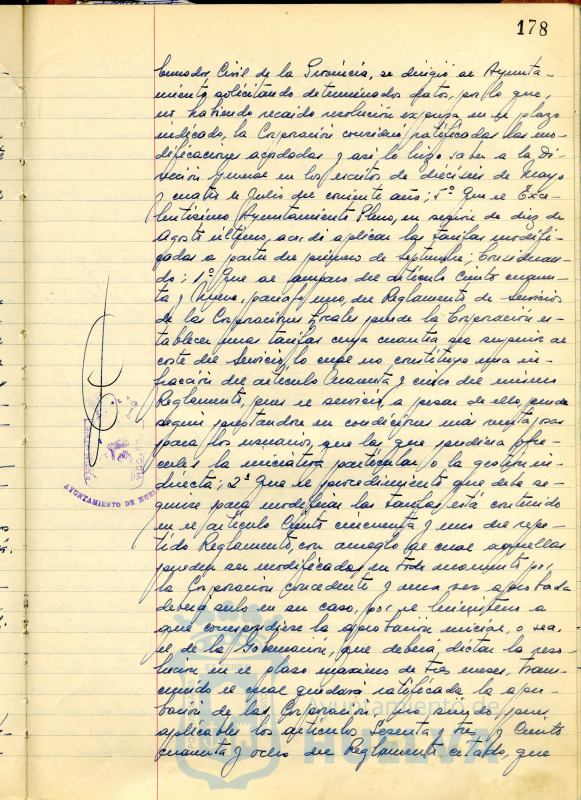 178
bernador Civil de la Provincia, se dirigió al Ayunta-
miento solicitando determinados datos, por lo que,
no habiendo recaído resolución expresa en el plazo
indicado, la Corporación consideró ratificadas las mo-
dificaciones acordadas y así lo hizo saber a la Di-
rección General en los escritos de dieciseis de Mayo
y cuatro de Julio del corriente año; 5º Que el Exce-
lentísimo Ayuntamiento Pleno, en sesión de diez de
Agosto último, acordó aplicar las tarifas modifi-
cadas a partir del primero de Septiembre; Consideran-
do: 1º Que al amparo del artículo ciento cuaren-
ta y nueve, párrafo uno, del Reglamento de Servicios
de las Corporaciones Locales puede la Corporación es-
tablecer unas tarifas cuya cuantía sea superior al
coste del Servicio, lo cual no constituye una in-
fracción del artículo cuarenta y cinco del mismo
Reglamento, pues el servicio, a pesar de ello, puede
seguir prestandose en condiciones más ventajosas
para los usuarios, que las que pudiera ofre-
cerles la iniciativa particular o la gestión in-
directa; 2º Que el procedimiento que debe se-
guirse para modificar las tarifas está contenido
en el artículo Ciento cincuenta y uno del repe-
tido Reglamento, con arreglo al cual aquellas
pueden ser modificadas en todo momento por
la Corporación concedente y una vez aprobada
deberá serlo en su caso, por el Ministerio a
que correspondiese la aprobación inicial, o sea,
el de la Gobernación, que deberá dictar la reso-
lución en el plazo maximo de tres meses, trans-
currido el cual quedará ratificada la apro-
bación de la Corporación, no siendo pues
aplicables los artículos sesenta y tres y Ciento
cuarenta y ocho del Reglamento citado, que
AYUNTAMIENTO DE HUELVA
Ayuntamiento de
HUELVA